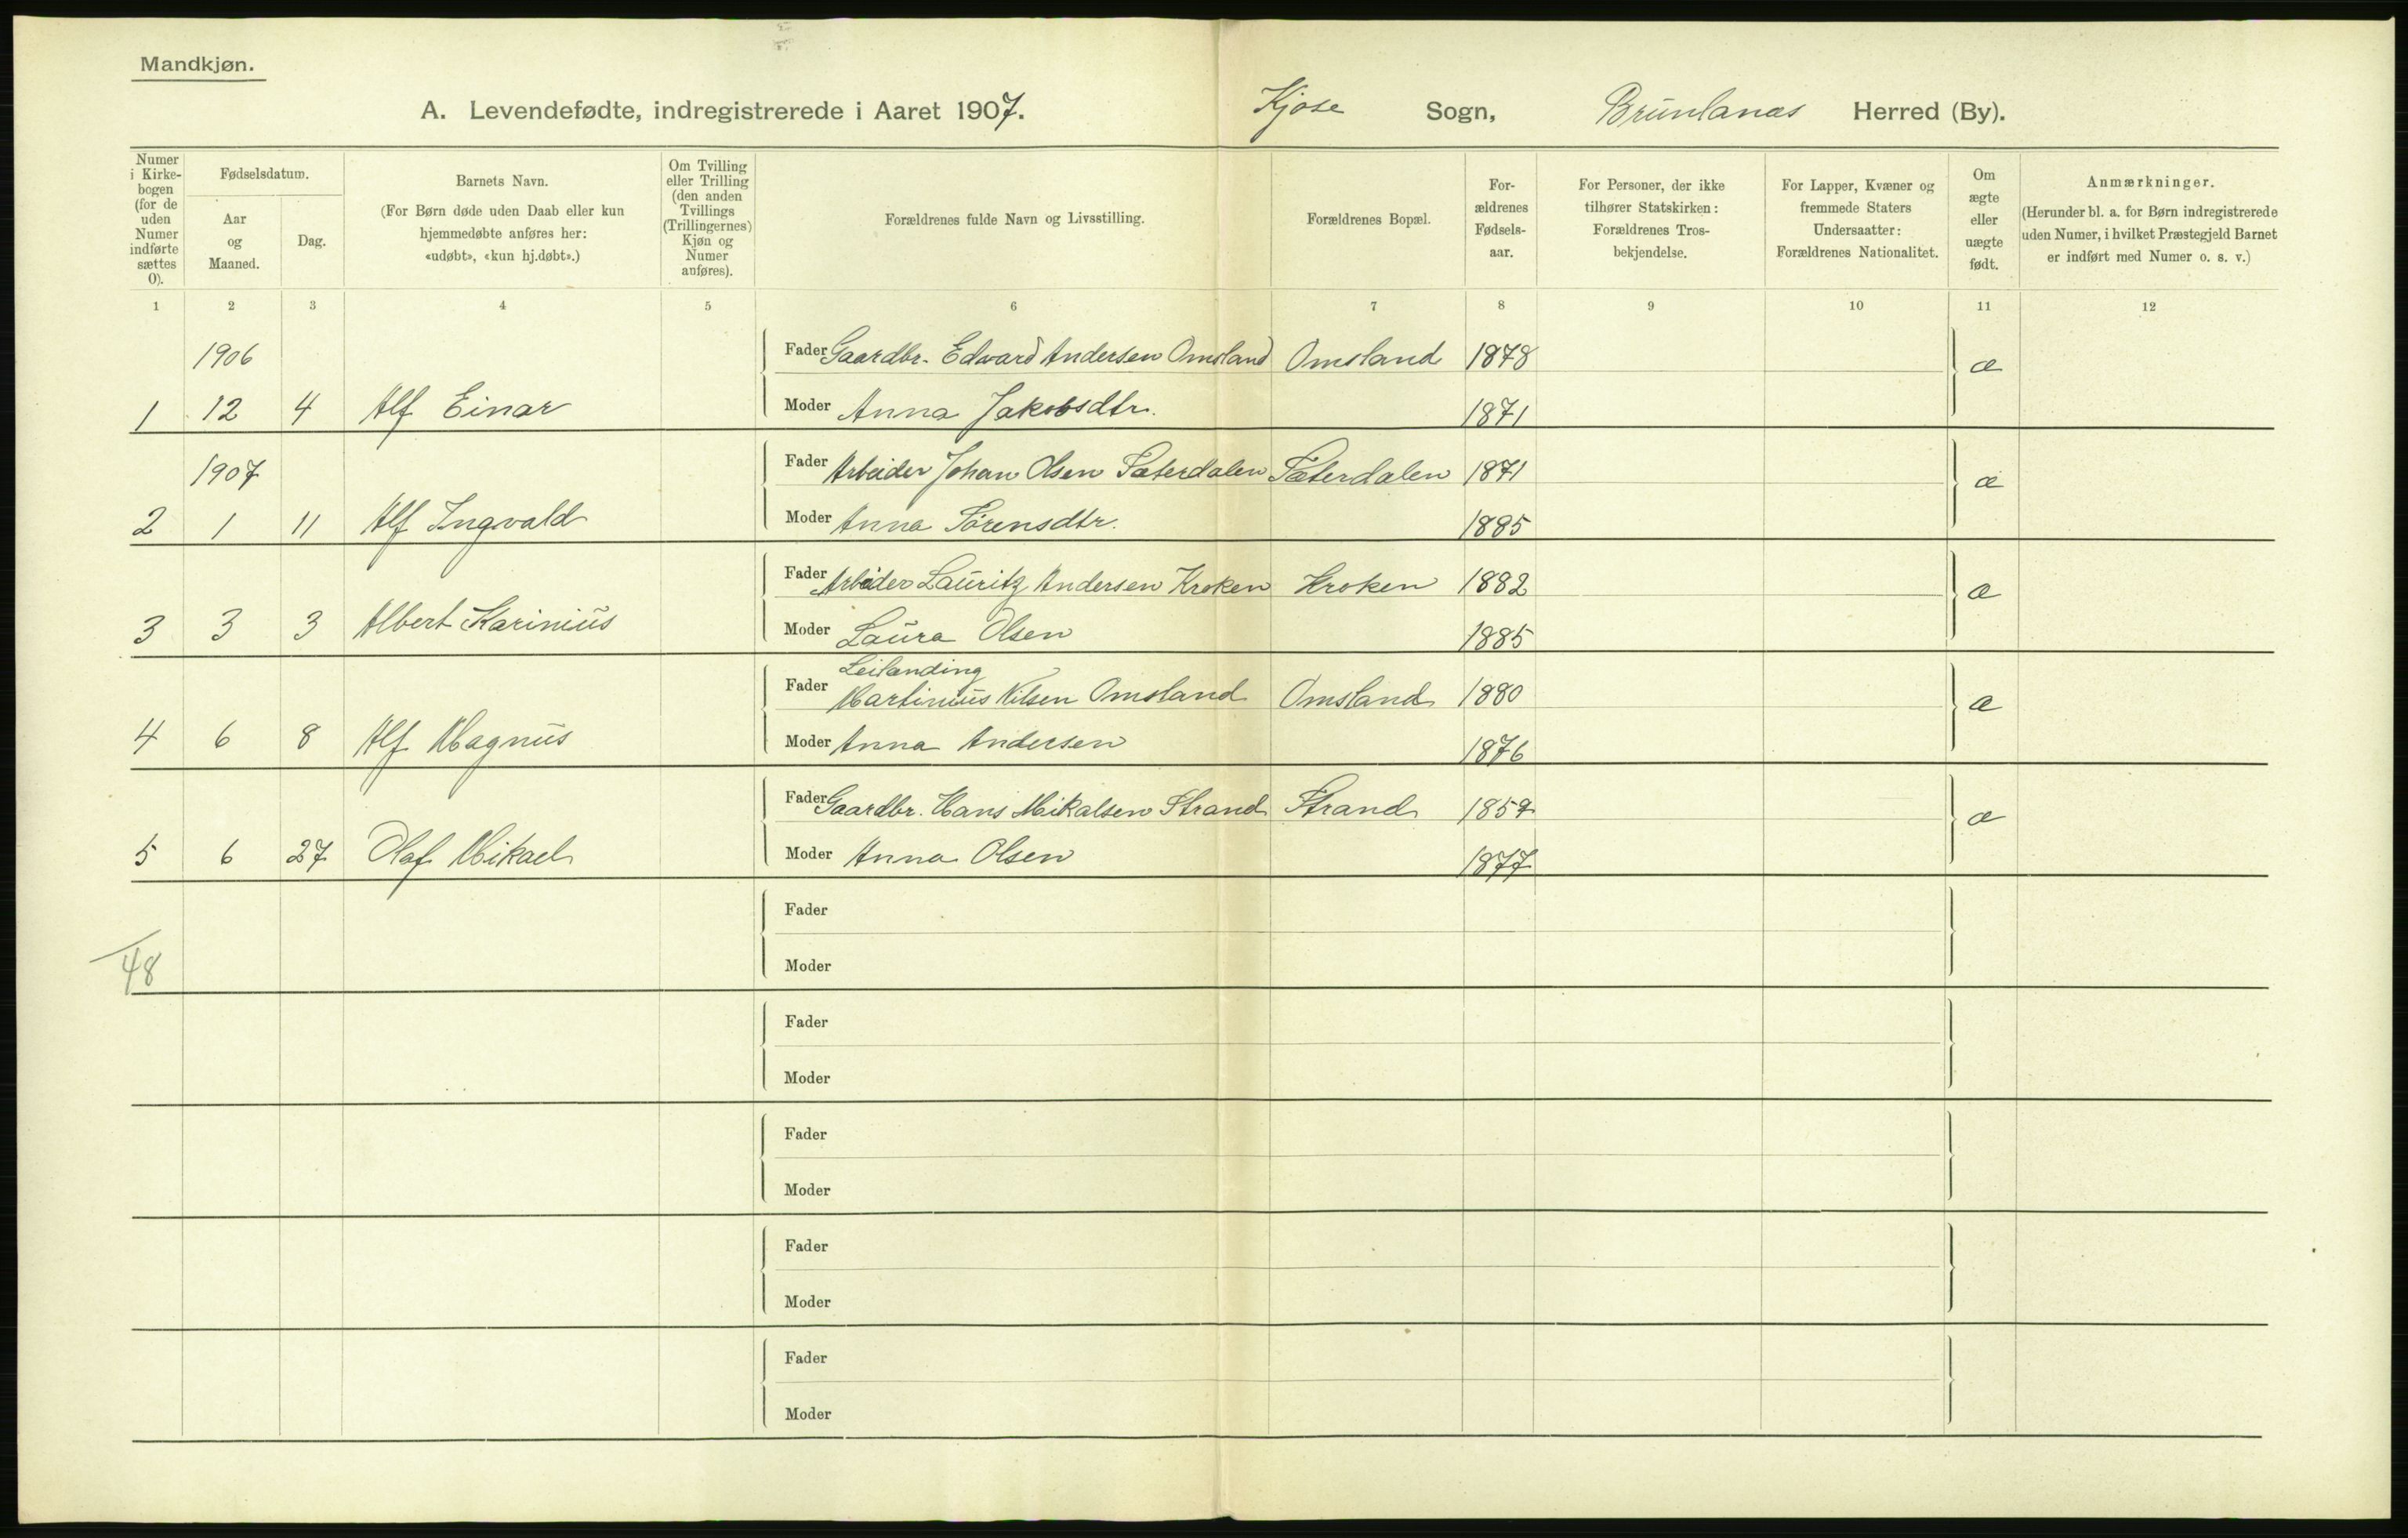 Mandkjøn.
A. Levendefødte, indregistrerede i Aaret 1907. Kjose Sogn, Brunlanæs Herred (By).
Numer i Kirkebogen (for de uden Numer indførte sættes 0).
Fødselsdatum.
Aar og Maaned.
Dag.
Barnets Navn.
(For Børn døde uden Daab eller kun
hjemmedøbte anføres her:
«udøbt», «kun hj.døbt».)
Om Tvilling
eller Trilling
(den anden
Tvillings
(Trillingernes)
Kjøn og
Numer
anføres).
Forældrenes fulde Navn og Livsstilling.
Forældrenes Bopæl.
For-
ældrenes
Fødsels-
aar.
For Personer, der ikke
tilhører Statskirken:
Forældrenes Tros-
bekjendelse.
For Lapper, Kvæner og
fremmede Staters
Undersaatter:
Forældrenes Nationalitet.
Om
ægte
eller
uægte
født.
Anmærkninger.
(Herunder bl. a. for Børn indregistrerede
uden Numer, i hvilket Præstegjeld Barnet
er indført med Numer o. s. v.)
1 2 3 4 5 6 7 8 9 10 11 12
1906 Fader Gaardbr. Edvard Andersen Omsland Omsland 1878 æ
1 12 4 Alf Einar Moder Anna Jakobsdtr. 1871
1907 Fader Arbeider Johan Olsen Sæterdalen Sæterdalen 1871 æ
2 1 11 Alf Ingvald Moder Anna Sörensdtr. 1885
Fader Arbeider Lauritz Andersen Kroken Kroken 1882 æ
3 3 3 Albert Karinius Moder Laura Olsen 1885
Leilænding
Fader Martinius Nilsen Omsland Omsland 1880 æ
4 6 8 Alf Magnus Moder Anna Andersen 1876
Fader Gaardbr. Hans Mikalsen Strand Strand æ
5 6 27 Olaf Mikael Moder Anna Olsen 1877
Fader
48 Moder
Fader
Moder
Fader
Moder
Fader
Moder
Fader
Moder